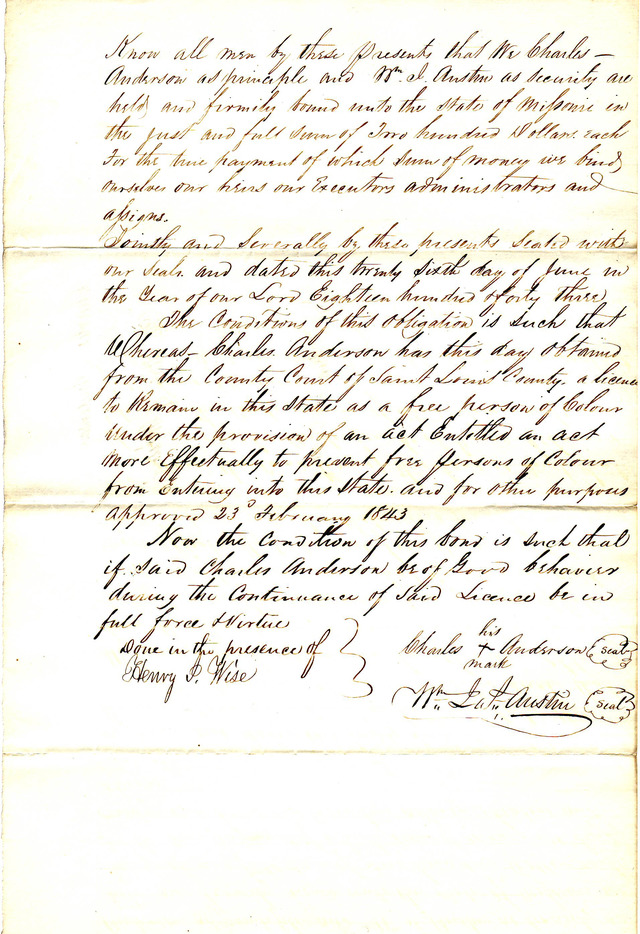 Know all men by these Presents that We Charles –
Anderson as principle and Wm J. Austin as security are
held and firmily bound unto the State of Missourie in
the just and full Sum of Two hundred Dollars each
For the true payment of which Sum of money we bind
ourselves our heirs our Executors administrators and
assigns.
Jointly and Severally by these presents Sealed with
our Seals and dated this twenty Sixth day of June in
the Year of our Lord Eighteen hundred & forty three
The Conditions of this Obligation is Such that
Whereas – Charles Anderson has this day Obtained
from the County Court of Saint Louis County, a licence
to Remane in this State as a free person of Colour
under the provision of an act Entotled an act
more Effectually to prevent free Persons of Colour
from Entering into this State and for other purposes
approved 23d February 1843
Now the Condition of this bond is Such that
if Said Charles Anderson be of Good behavier
during the Continuance of Said Licence be in
full force & Virtue
Done in the presence of
Henry P. Wise
his
Charles + Anderson (seal)
mark
Wm Austin (seal)